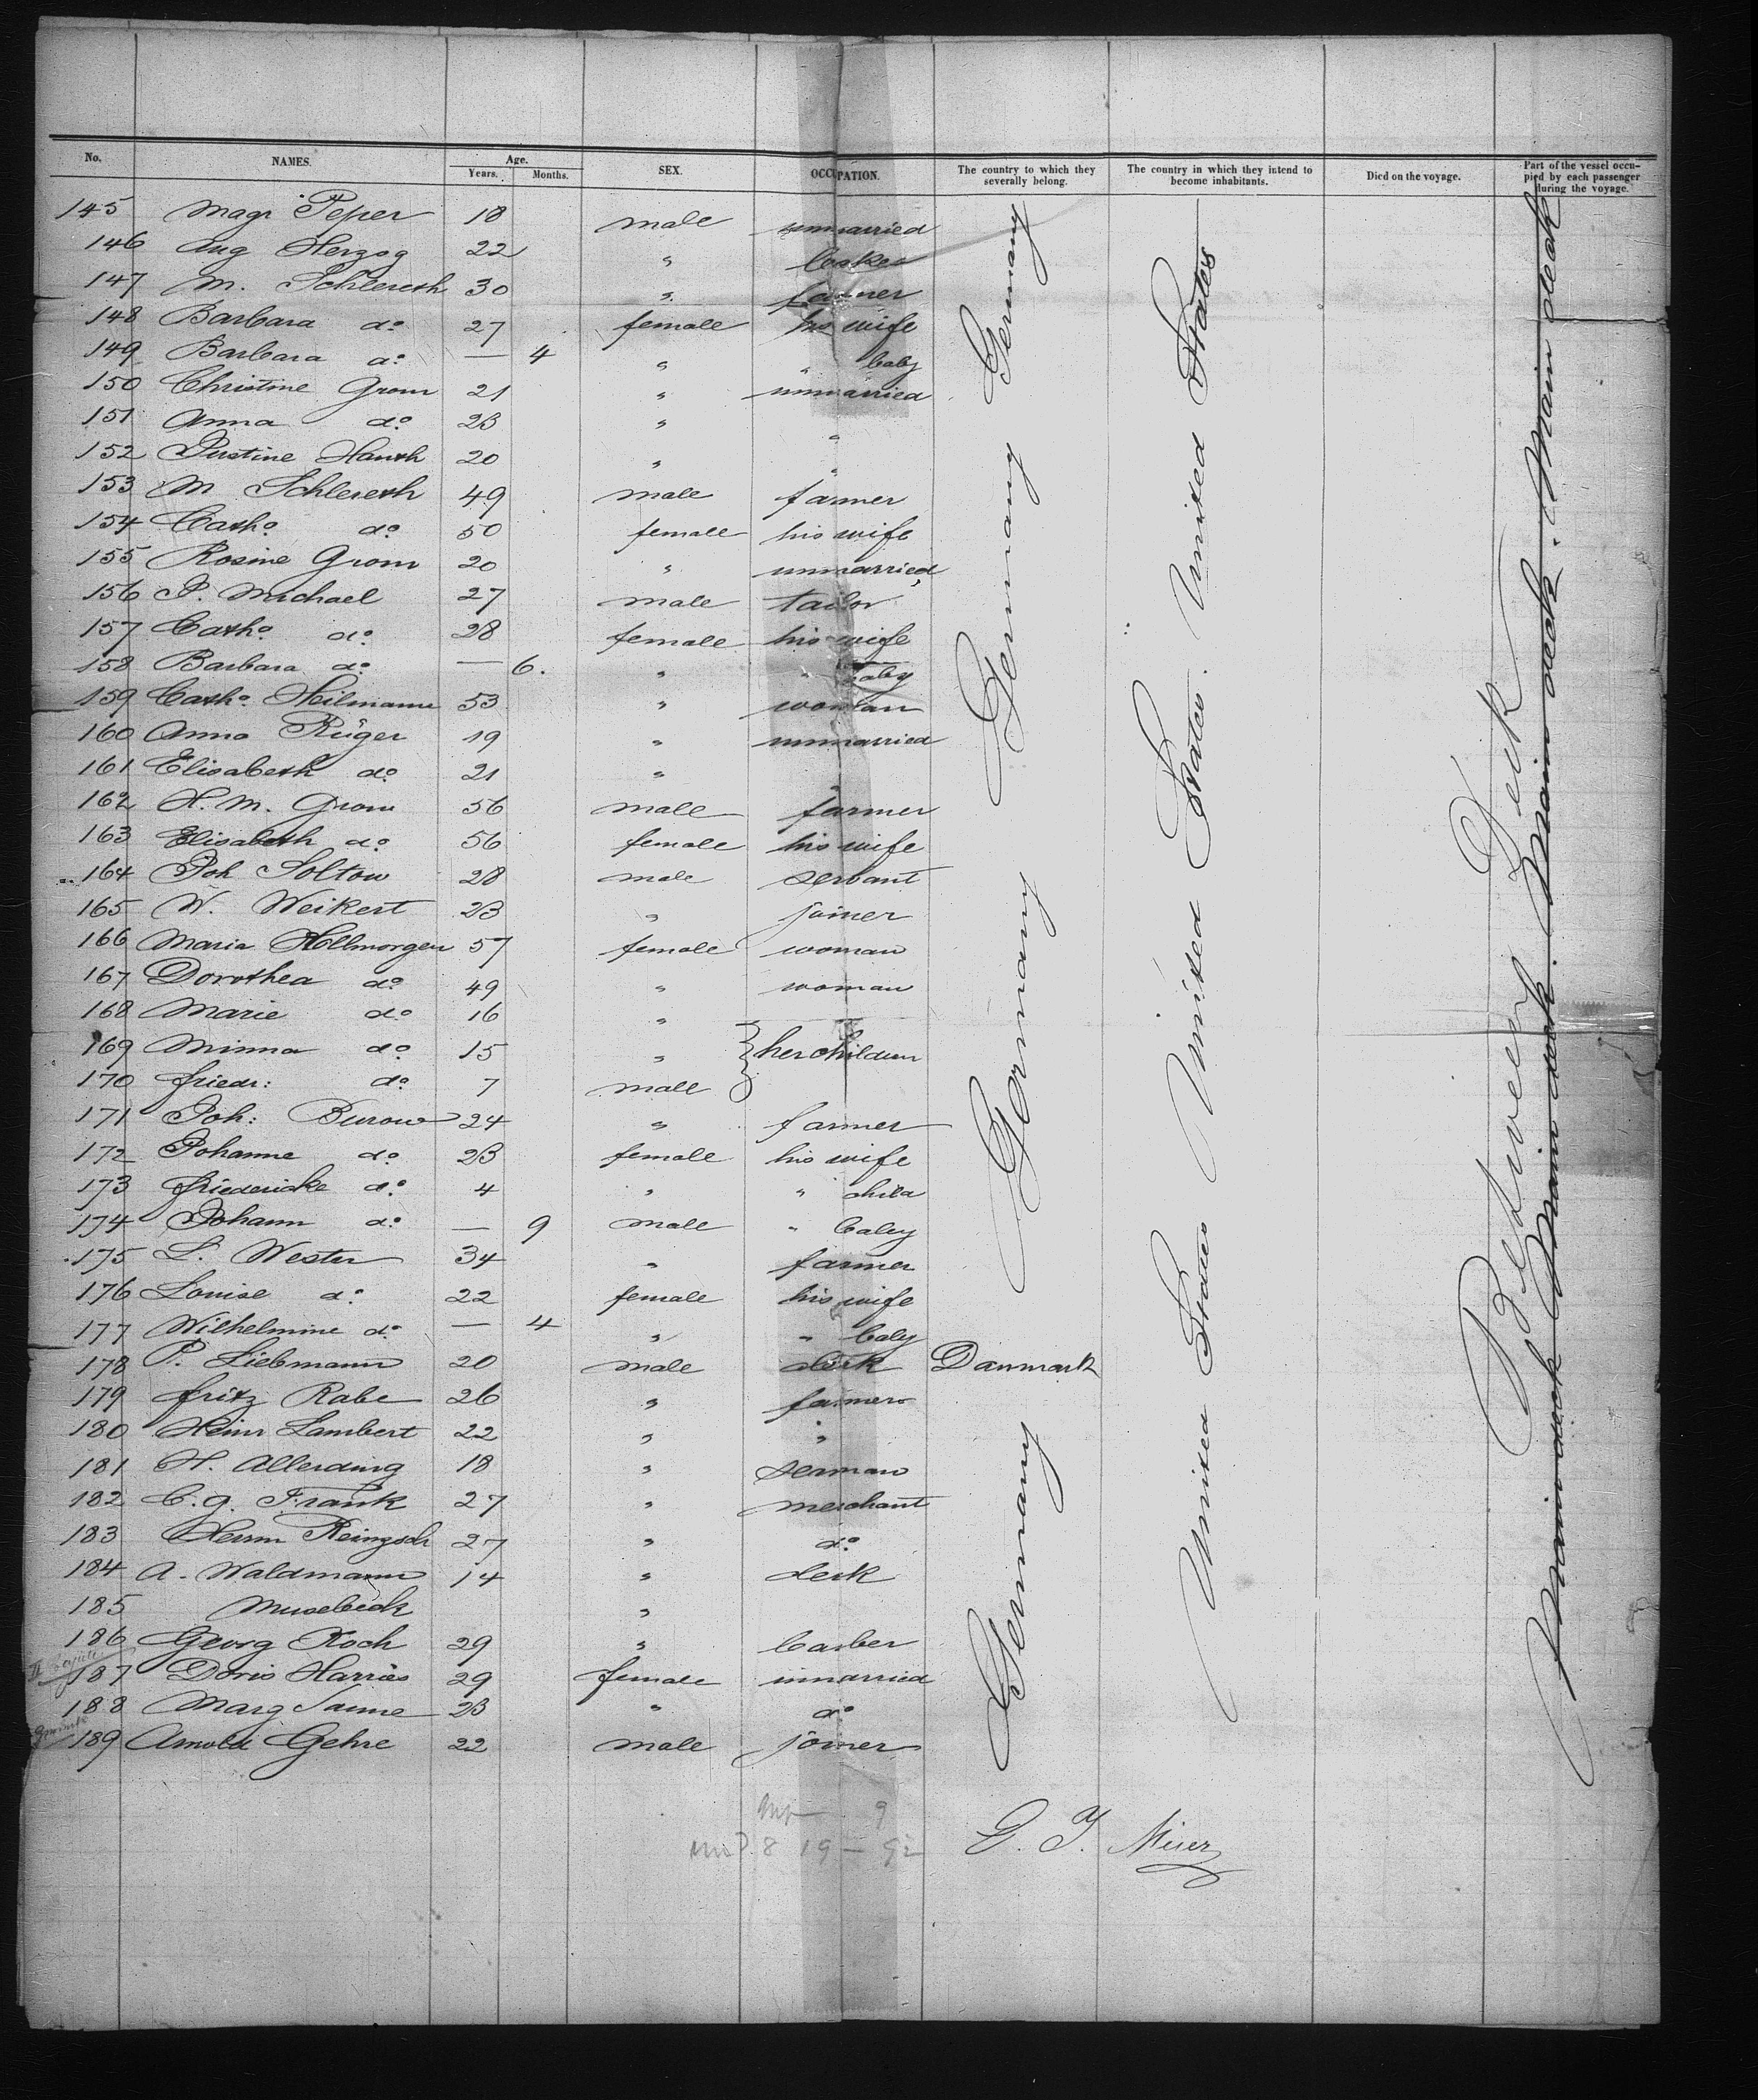 No. NAMES. Age. Years. Months. SEX. OCCUPATION. The country to which they severally belong. The country in which they intend to become inhabitants. Died on the voyage. Part of the vessel occupied by each passenger during the voyage.
145 Magr Peper 18 male unmarried
146 Aug Herzog 22 "
147 M. Schlereth 30 " farmer
148 Barbara do 27 female his wife
149 Barbara do — 4 " " baby
150 Christine Grom 21 " unmarried
151 Anna do 23 " "
152 Justine Hauth 20 " "
153 M Schlereth 49 male farmer
154 Catho do 50 female his wife
155 Rosine Grom 20 " unmarried
156 P. Michael 27 male tailor
157 Catho do 28 female his wife
158 Barbara do — 6. " " baby
159 Catho Heilmann 53 " woman
160 Anna Rüger 19 " unmarried
161 Elisabeth do 21 " "
162 H. M. Grom 56 male farmer
163 Elisabeth do 56 female his wife
164 Joh Soltow 28 male servant
165 W. Weikert 23 " joiner
166 Maria Hollmorgen 57 female woman
167 Dorothea do 49 " woman
168 Marie do 16 "
169 Minna do 15 " her children
170 Friedr: do 7 male
171 Joh: Burow 24 " farmer
172 Johanne do 23 female his wife
173 Friedericke do 4 " " child
174 Johann do — 9 male " baby
175 L. Wester 34 " farmer
176 Louise do 22 female his wife
177 Wilhelmine do — 4 " " baby
178 P. Liebmann 20 male clerk Danmark
179 Fritz Rabe 26 " farmer
180 Heinr Lambert 22 " "
181 H. Allerding 18 "
182 C. G. Frank 27 " merchant
183 Herm Reinzsch 27 " do
184 A. Waldmann 14 " clerk
185 Musebeck "
186 Georg Koch 29 " barber
187 Doris Harries 29 female unmarried
188 Marg Janne 23 " do
189 Arnold Gehre 22 male joiner
Germany Germany Germany Germany
United States United States United States
Between Deck
Main deck Main deck Main deck Main deck